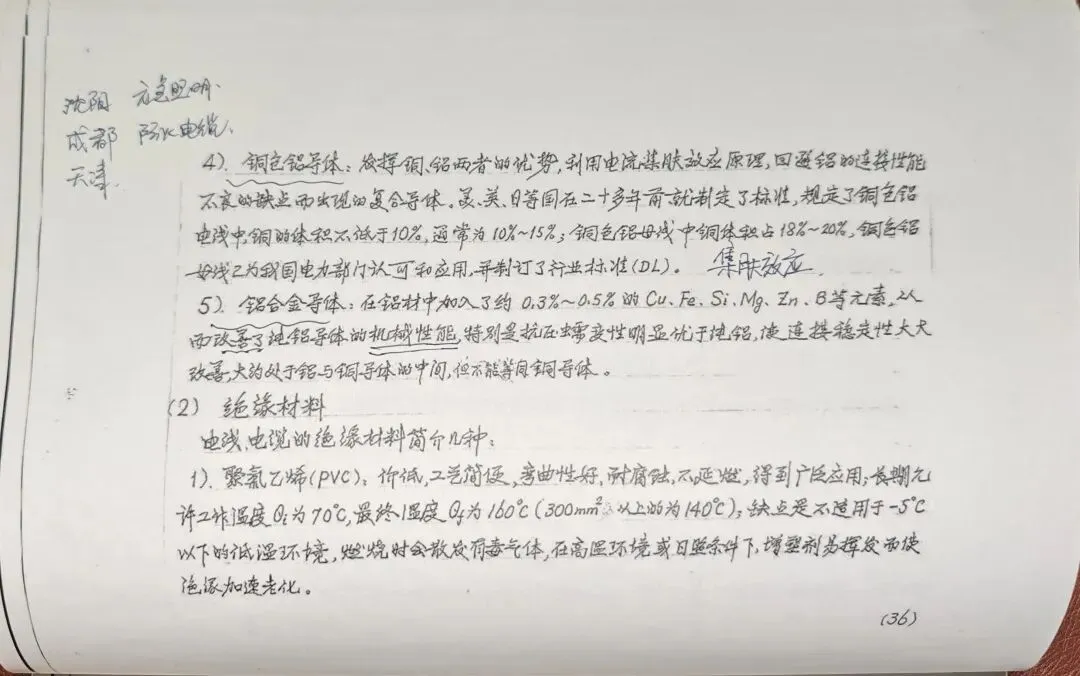 沈阳 照明.
成都 防火电缆、
天津.
4). 铜包铝导体：发挥铜、铝两者的优势，利用电流集肤效应原理，回避铝的连接性能
不良的缺点而出现的复合导体。英、美、日等国在二十多年前就制定了标准，规定了铜包铝
电线中，铜的体积不低于10%，通常为10%~15%；铜包铝母线中铜体积占18%~20%，铜包铝
母线已为我国电力部门认可和应用，并制订了行业标准(DL)。 集肤效应.
5). 铝合金导体：在铝材中加入了约0.3%~0.5%的Cu、Fe、Si、Mg、Zn、B等元素，从
而改善了纯铝导体的机械性能，特别是抗压蠕变性明显优于纯铝，使连接稳定性大大
改善，大约处于铝与铜导体的中间，但不能等同铜导体。
(2) 绝缘材料
电线、电缆的绝缘材料简介几种：
1). 聚氯乙烯(PVC)：价低，工艺简便，弯曲性好，耐腐蚀，不延燃，得到广泛应用；长期允
许工作温度θi为70℃，最终温度θf为160℃(300mm²以上的为140℃)；缺点是不适用于-5℃
以下的低温环境，燃烧时会散发有毒气体，在高温环境或日照条件下，增塑剂易挥发而使
绝缘加速老化。
(36)